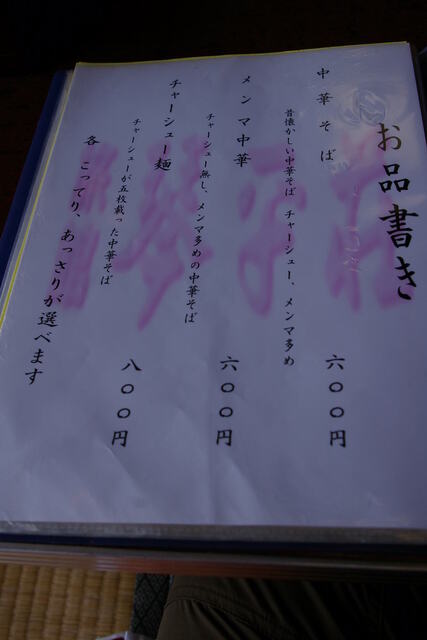 お品書き
中華そば
昔懐かしい中華そば チャーシュー、メンマ多め
六〇〇円
メンマ中華
チャーシュー無し、メンマ多めの中華そば
六〇〇円
チャーシュー麺
チャーシューが五枚載った中華そば
八〇〇円
各 こってり、あっさりが選べます